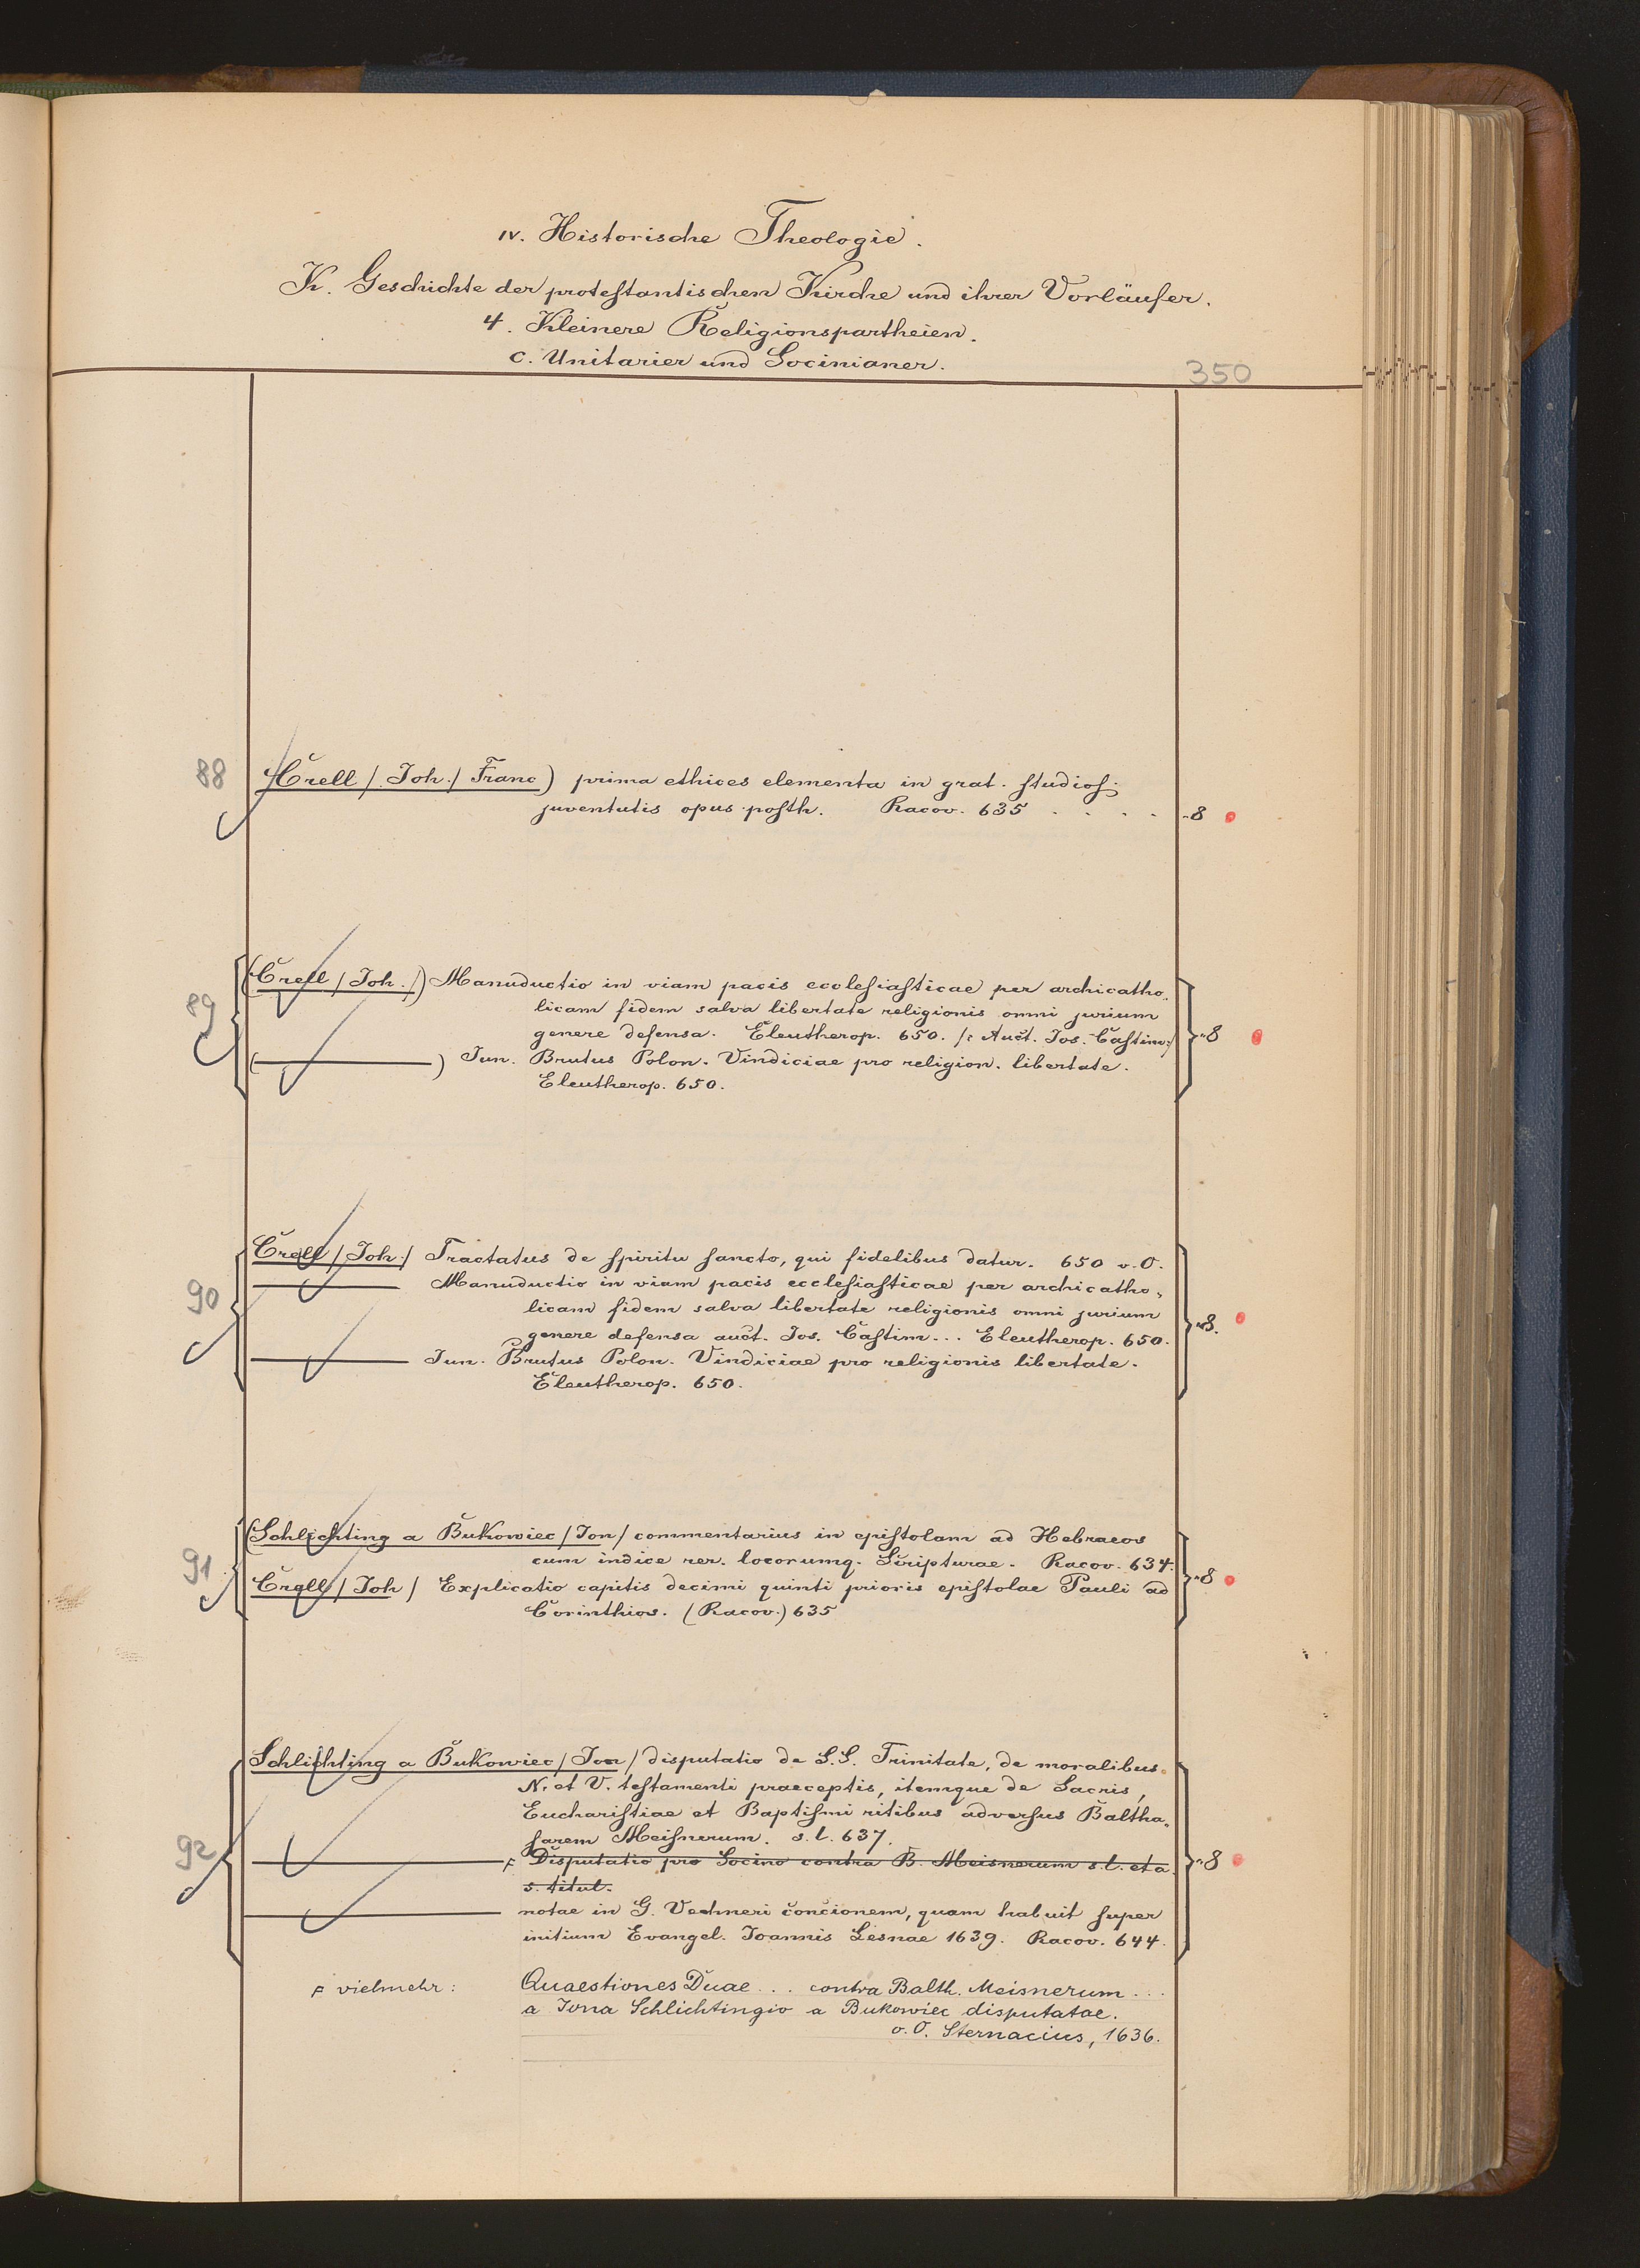 IV. Historische Theologie.
K. Geschichte der protestantischen Kirche und ihrer Vorläufer.
4. Kleinere Religionspartheien.
c. Unitarier und Socinianer.
350
88 Crell /. Joh./ Franc) prima ethices elementa in grat. studios.
juventutis opus posth. Racov. 635 . . . . "8
(Crell / Joh./) Manuductio in viam pacis ecclesiasticae per archicatho„
licam fidem salva libertate religionis omni jurium
89 genere defensa. Eleutherop. 650. /: Auct. Jos. Castim:/ "8
(———) Jun. Brutus Polon. Vindiciae pro religion. libertate.
Eleutherop. 650.
Crell / Joh./ Tractatus de spiritu sancto, qui fidelibus datur. 650 v.O.
——— Manuductio in viam pacis ecclesiasticae per archicatho„
90 licam fidem salva libertate religionis omni jurium
genere defensa auct. Jos. Castim... Eleutherop. 650. "8.
——— Jun. Brutus Polon. Vindiciae pro religionis libertate.
Eleutherop. 650.
(Schlichting a Bukowiec / Jon / commentarius in epistolam ad Hebraeos
cum indice rer. locorumq. Scripturae. Racov. 634.
91 Crell / Joh / Explicatio capitis decimi quinti prioris epistolae Pauli ad "8
Corinthios. (Racov.) 635
Schlichting a Bukowiec / Jon / disputatio de S.S. Trinitate, de moralibus
N. et V. testamenti praeceptis, itemque de Sacris,
Eucharistiae et Baptismi ritibus adversus Baltha„
sarem Meisnerum. s.l. 637.
92 ——— F Disputatio pro Socino contra B. Meisnerum s.l. et a. "8
s. titul.
——— notae in G. Vechneri concionem, quam habuit super
initium Evangel. Joannis Lesnae 1639. Racov. 644.
F vielmehr: Quaestiones Duae ... contra Balth. Meisnerum ...
a Jona Schlichtingio a Bukowiec disputatae.
o.O. Sternacius, 1636.